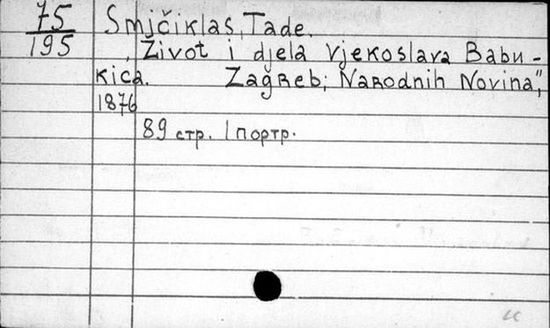 75
195
Smjčiklas, Tade.
Život i djela Vjekoslava Babu-
kića. Zagreb, "Narodnih Novina",
1876
89 стр. 1 портр.